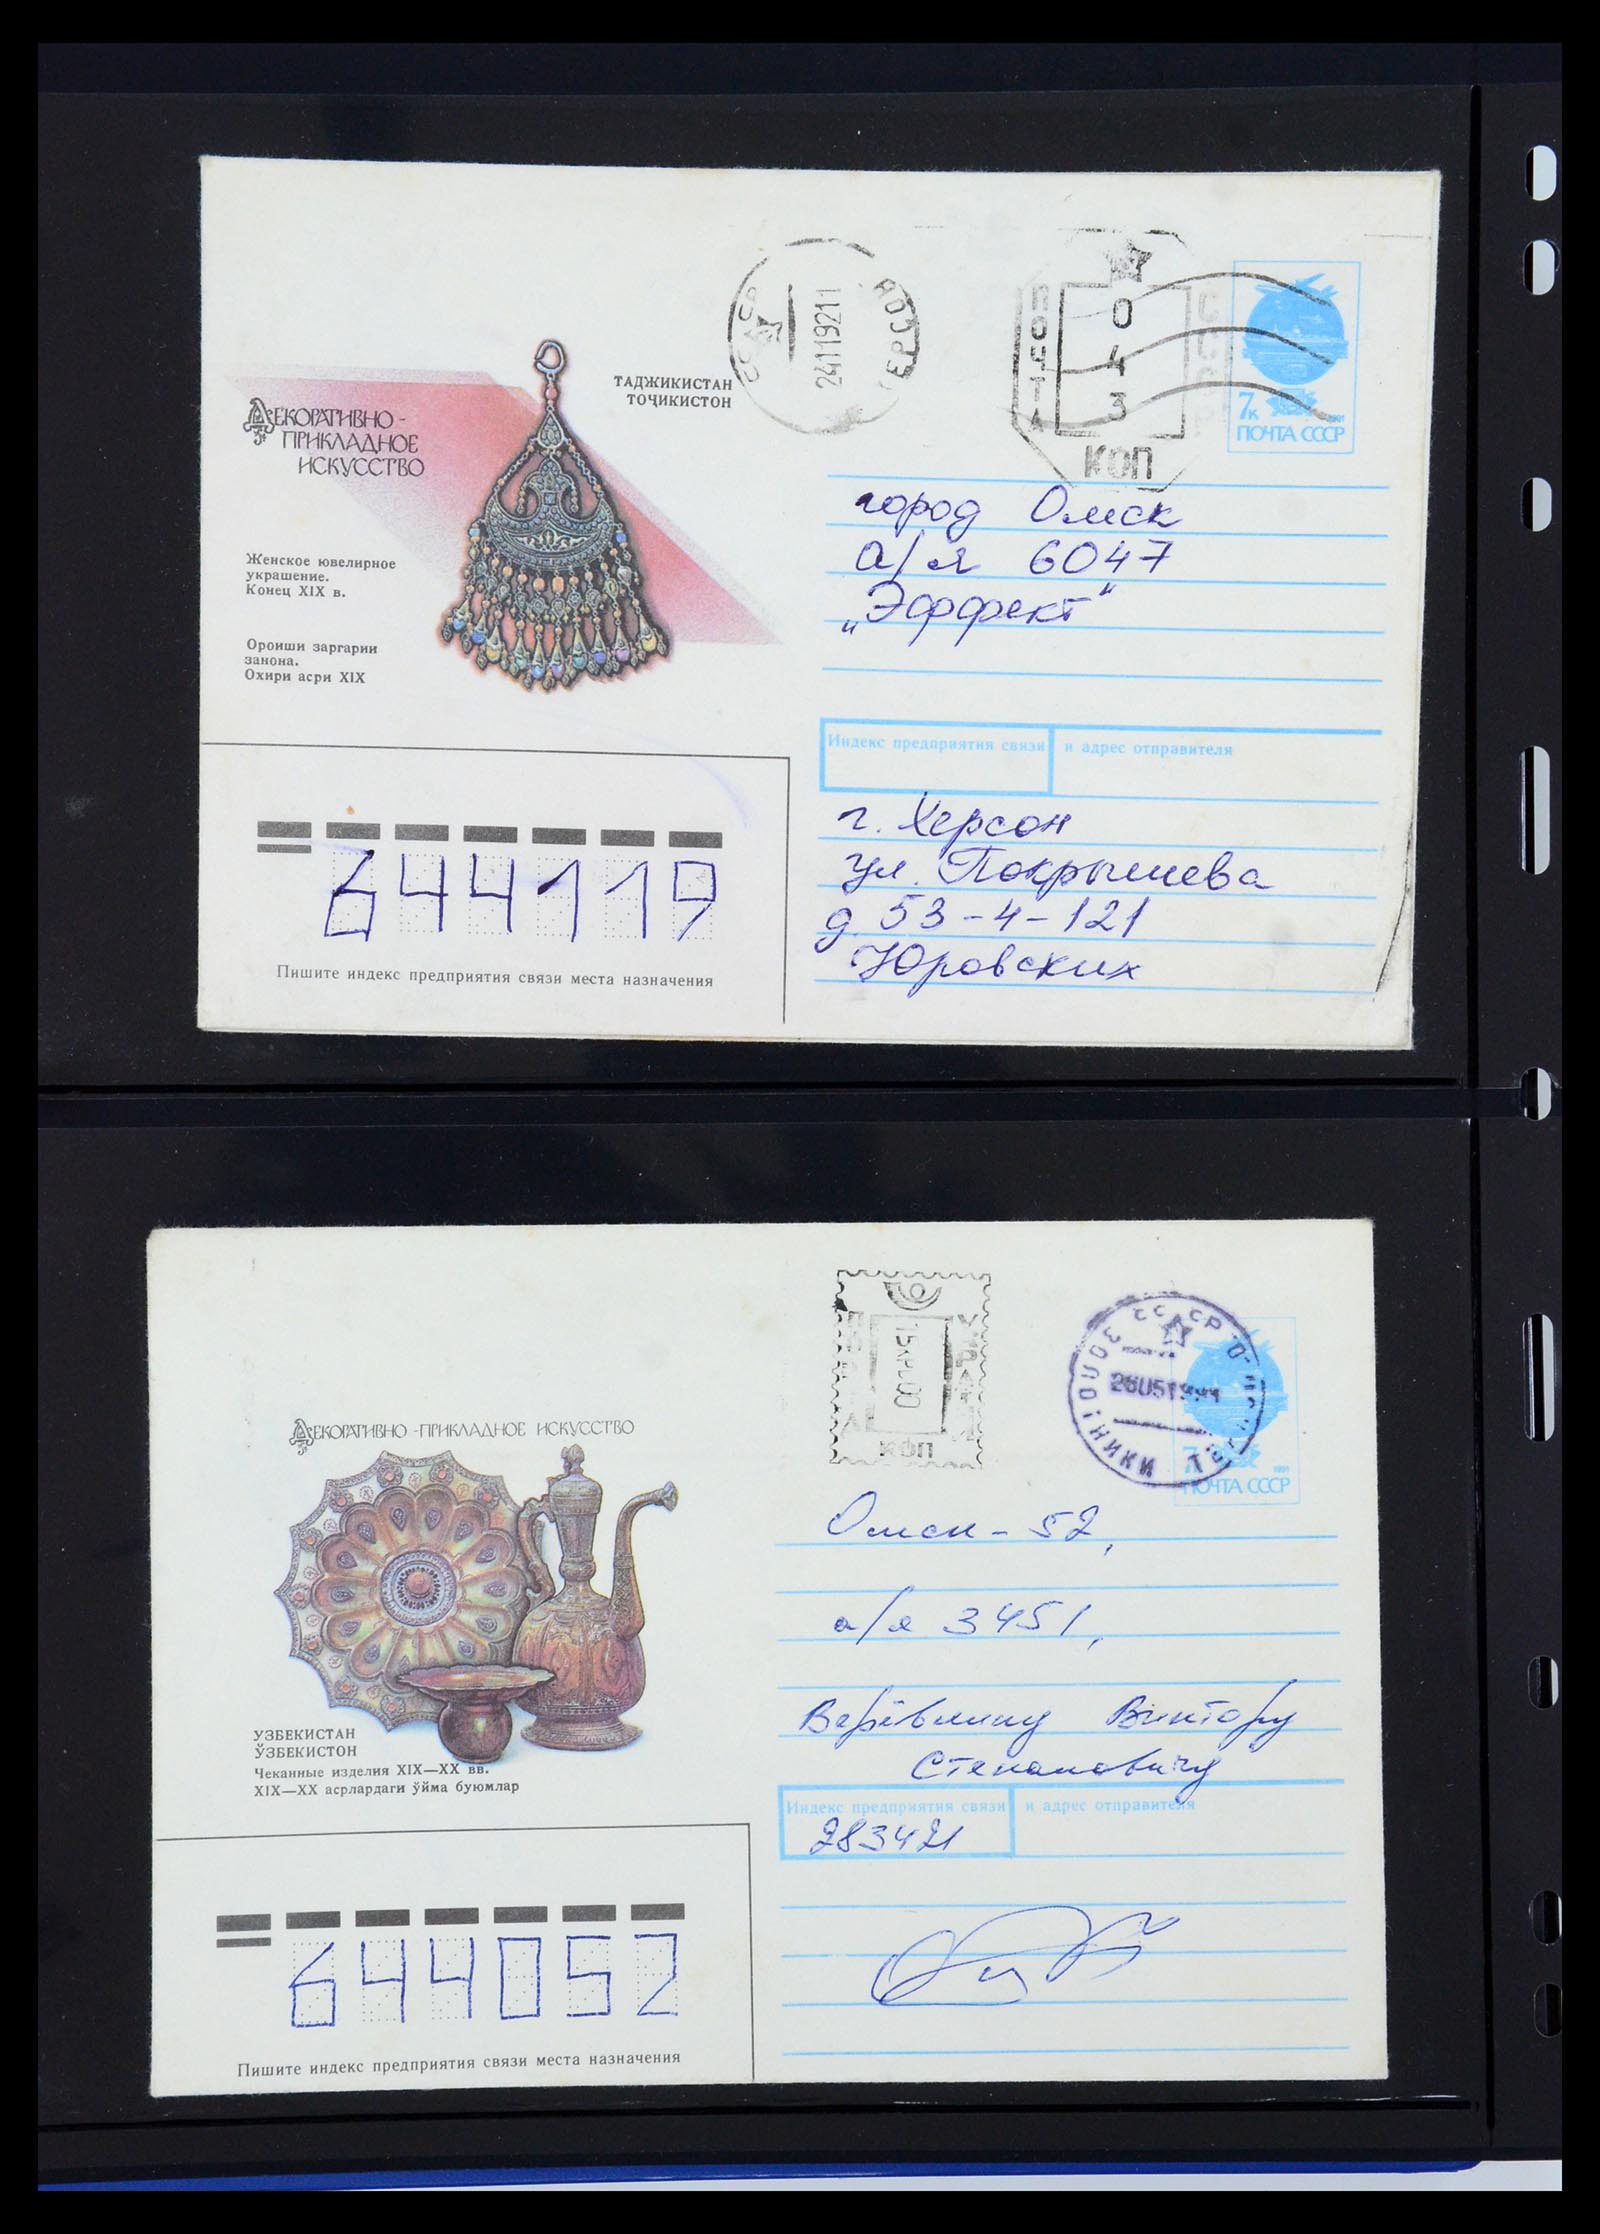 ТАДЖИКИСТАН
ТОҶИКИСТОН
ДЕКОРАТИВНО-
ПРИКЛАДНОЕ
ИСКУССТВО
Женское ювелирное
украшение.
Конец XIX в.
Ороиши заргарии
занона.
Охири асри XIX
СССР
24119211
ПОЧТА
СССР
043
КОП
7к
1991
ПОЧТА СССР
город Омск
а/я 6047
„Эффект"
Индекс предприятия связи и адрес отправителя
г. Херсон
ул. Покрышева
д. 53-4-121
Юровских
644119
Пишите индекс предприятия связи места назначения
КОП
СССР
7к
1991
ПОЧТА СССР
ДЕКОРАТИВНО-ПРИКЛАДНОЕ ИСКУССТВО
УЗБЕКИСТАН
ЎЗБЕКИСТОН
Чеканные изделия XIX—XX вв.
XIX—XX асрлардаги ўйма буюмлар
Омск-52,
а/я 3451,
Виктору
Степановичу
Индекс предприятия связи и адрес отправителя
283421
644052
Пишите индекс предприятия связи места назначения